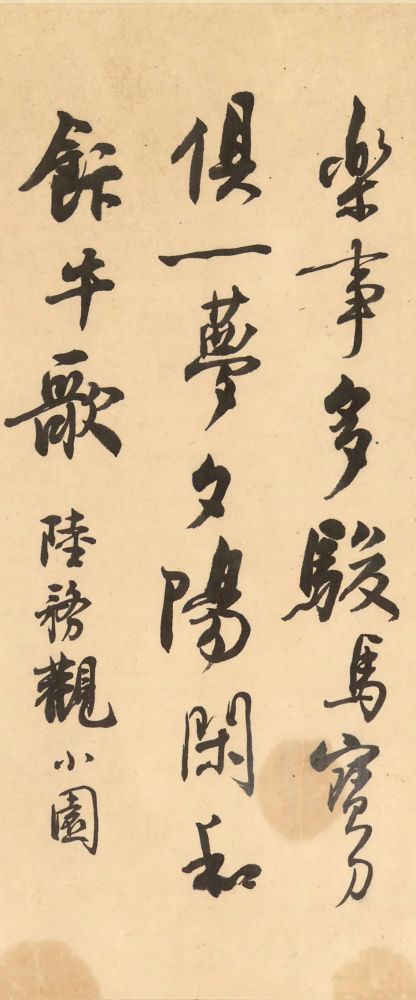 樂事多駿馬寶刀
俱一夢夕陽閑和
飰牛歌 陸務觀小園